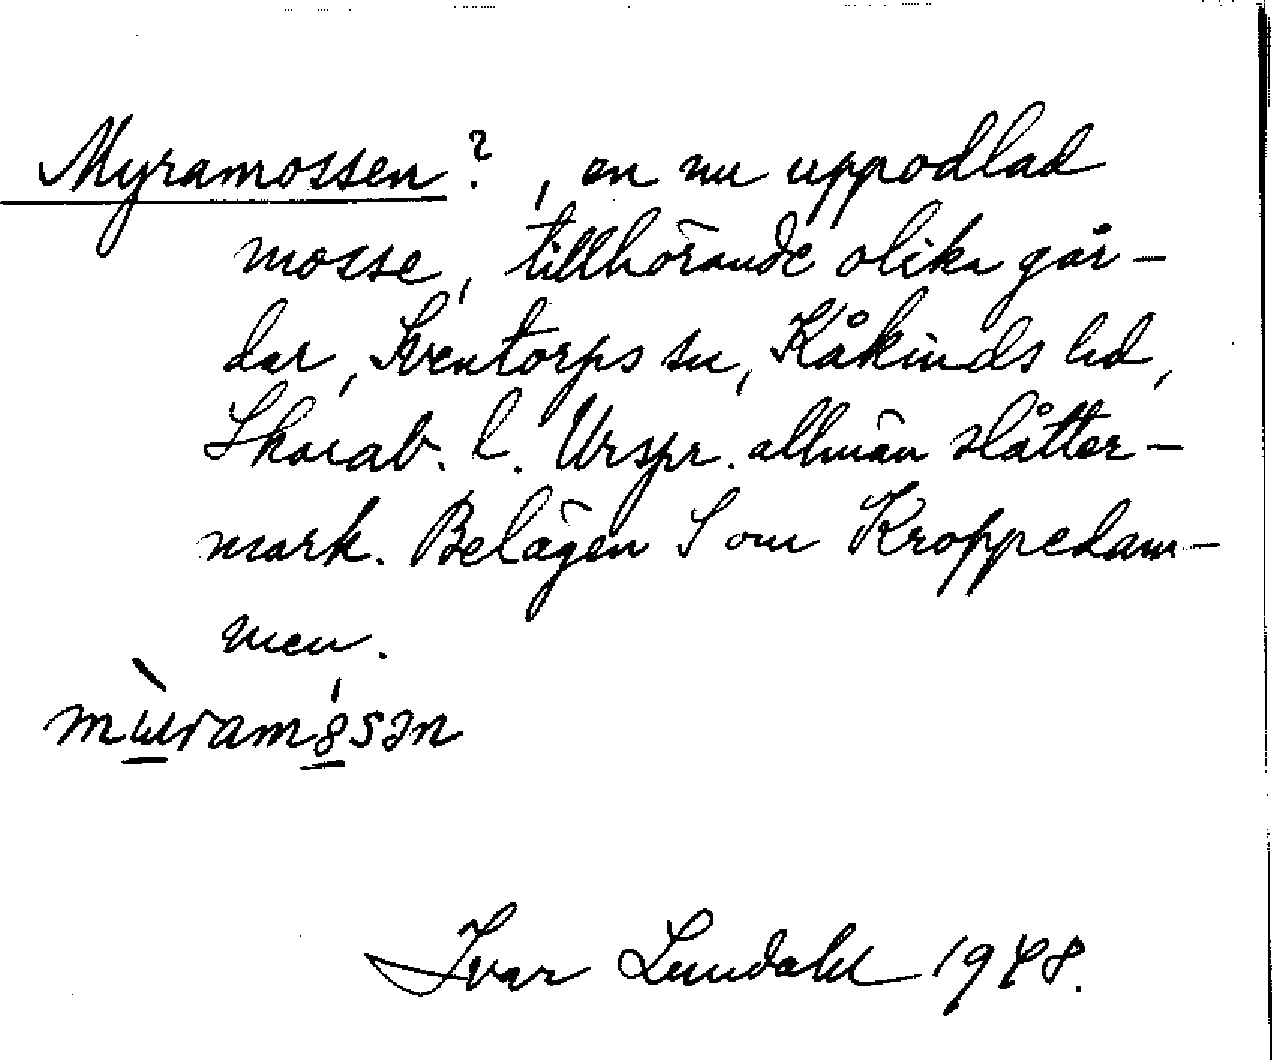 Myramossen?, en nu uppodlad
mosse, tillhörande olika går-
dar, Sventorps sn, Kåkinds hd,
Skarab. l. Urspr. allmän slåtter-
mark. Belägen S om Kroppedam-
men.
Ivar Lundahl 1948.